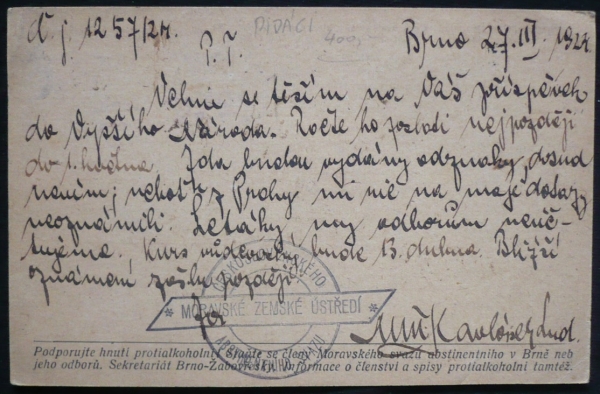 č. j. 1257/24.
PIDACÍ
400,-
P. T.
Brno 27. III. 1924
Velmi se těším na Váš příspěvek
do Vyššího Národa. Račte ho poslati nejpozději
do 1. května. Zda budou vydány odznaky, dosud
nevím; neboť z Prahy mi nic na moje dotazy
neoznámili. Letáky odborům neúč-
tujeme. Kurs bude 13. dubna. Bližší
oznámení zašlu později.
ČESKOSLOVENSKÉHO
MORAVSKÉ ZEMSKÉ ÚSTŘEDÍ
ABSTINENTNÍHO SVAZU
Podporujte hnutí protialkoholní! Staňte se členy Moravského svazu abstinentního v Brně neb
jeho odborů. Sekretariát Brno-Žabovřesky. Informace o členství a spisy protialkoholní tamtéž.